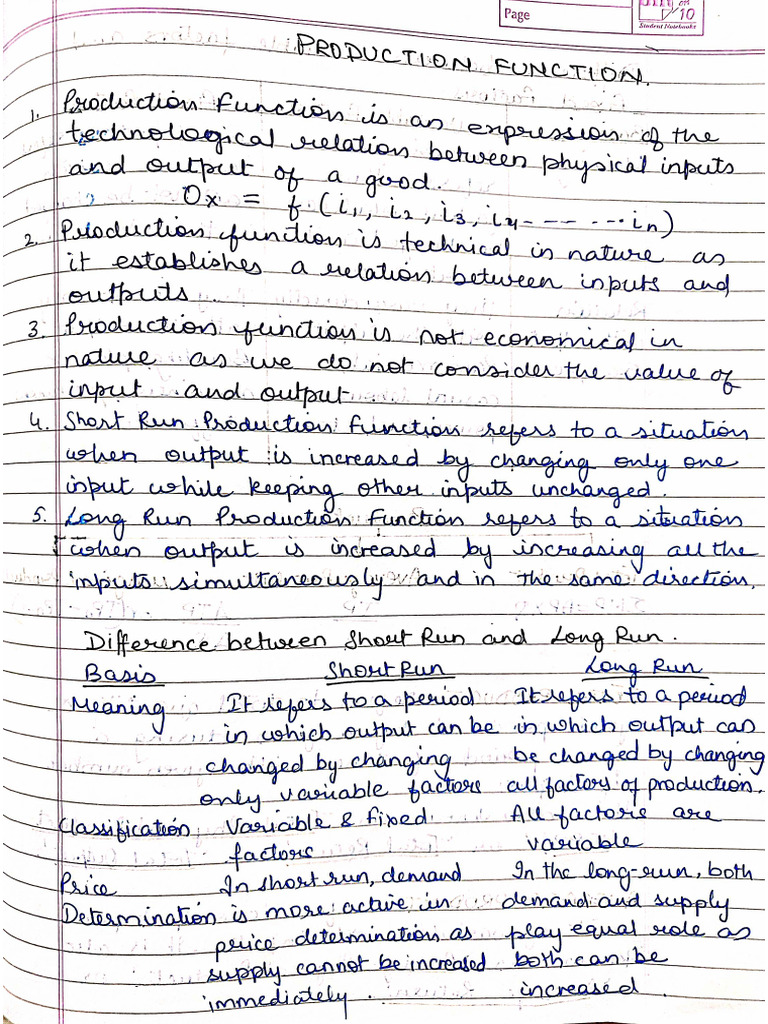 Page
10
Student Notebooks
PRODUCTION FUNCTION.
1. Production Function is an expression of the
technological relation between physical inputs
and output of a good.
Ox = f (i1, i2, i3, i4- -- -- ...in)
2. Production function is technical in nature as
it establishes a relation between inputs and
outputs.
3. Production function is not economical in
nature as we do not consider the value of
input and output
4. Short Run Production Function refers to a situation
when output is increased by changing only one
input while keeping other inputs unchanged.
5. Long Run Production Function refers to a situation
when output is increased by increasing all the
inputs simultaneously and in the same direction.
Difference between Short Run and Long Run.
Basis Short Run Long Run
Meaning It refers to a period It refers to a period
in which output can be in which output can
changed by changing be changed by changing
only variable factors all factors of production.
Classification Variable & fixed All factors are
factors variable
Price In short run, demand In the long-run, both
Determination is more active in demand and supply
price determination as play equal role as
supply cannot be increased both can be
immediately. increased.